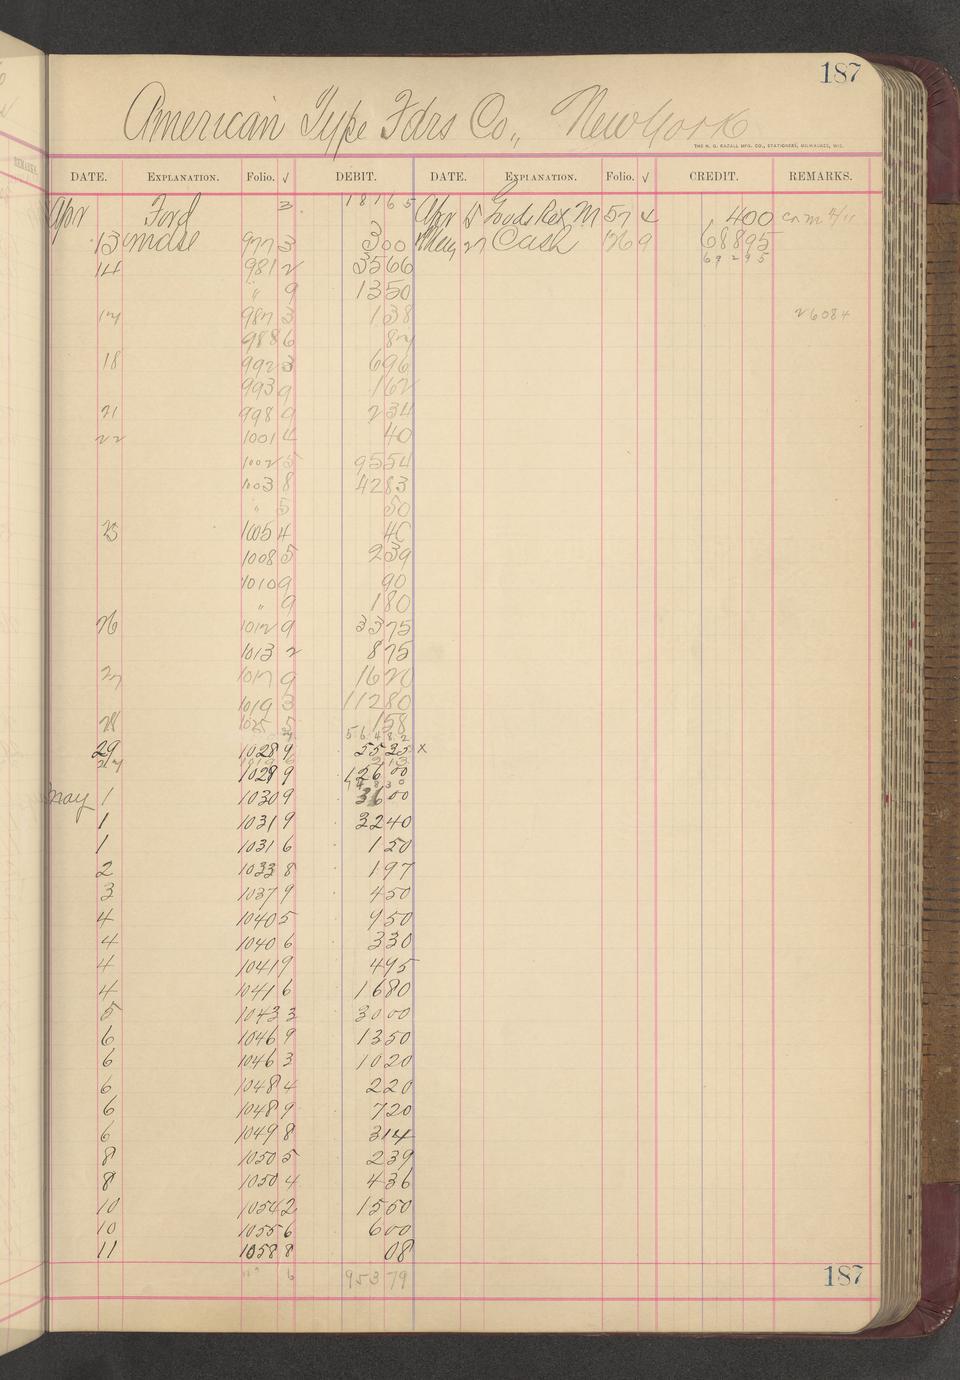 187
American Type Fdrs Co., New York
THE H. G. RAZALL MFG. CO., STATIONERS, MILWAUKEE, WIS.
DATE. EXPLANATION. Folio. √ DEBIT. DATE. EXPLANATION. Folio. √ CREDIT. REMARKS.
Apr Ford 3 18165 Apr 5 Goods Rex M 57 4 400
13 mdse 977 3 300 May 27 Cash 769 68895
14 981 2 3566 69295
" 9 1350
17 987 3 138 26084
988 6 87
18 992 3 696
993 9 162
21 998 9 234
22 1001 4 40
1002 5 9554
1003 8 4283
" 5 50
23 1005 4 40
1008 5 239
1010 9 90
" 9 180
26 1012 9 3375
1013 2 875
27 1017 9 1620
1019 3 11280
28 1025 5 158
56482
29 1028 9 5525 x
1029 9 12600
May 1 1030 9 3600
1 1031 9 3240
1 1031 6 150
2 1033 8 197
3 1037 9 450
4 1040 5 950
4 1040 6 330
4 1041 9 495
4 1041 6 1680
5 1043 3 3000
6 1046 9 1350
6 1046 3 1020
6 1048 4 220
6 1048 9 720
6 1049 8 314
8 1050 5 239
8 1050 4 436
10 1054 2 1550
10 1055 6 600
11 1058 8 08
6 95379
187